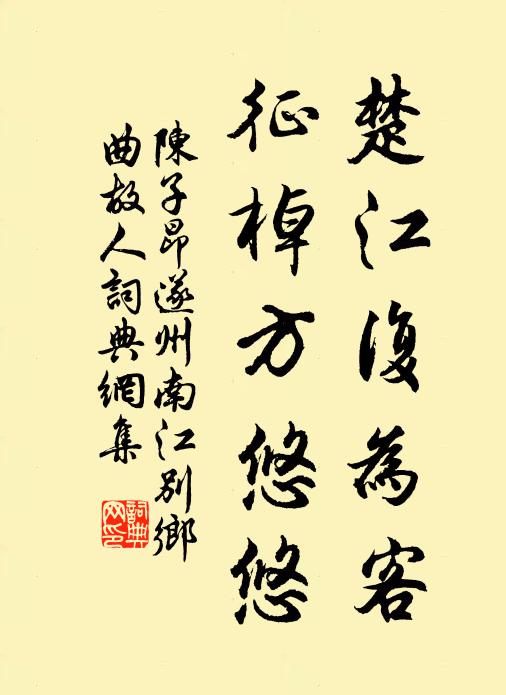 楚江復為客
征棹方悠悠
陳子昂遂州南江別鄉
曲故人詞典網集
詞典
网印